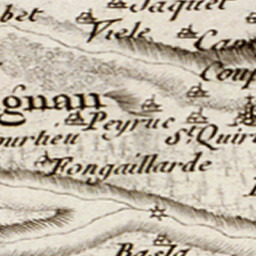 bet
Jaquet
Viele
Cam
Coup
gnau
Peyruc
St. Quir
ourheu
Fongaillarde
Basla